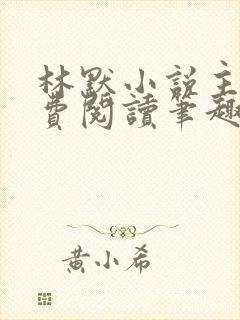 林默小説主
費閱讀筆趣
黃小希